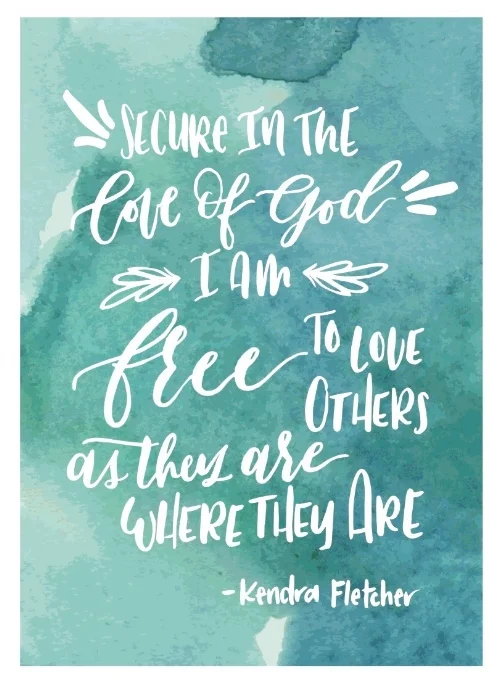 SECURE IN THE
love of God
I AM
free TO LOVE
OTHERS
as they are
WHERE THEY ARE
-Kendra Fletcher